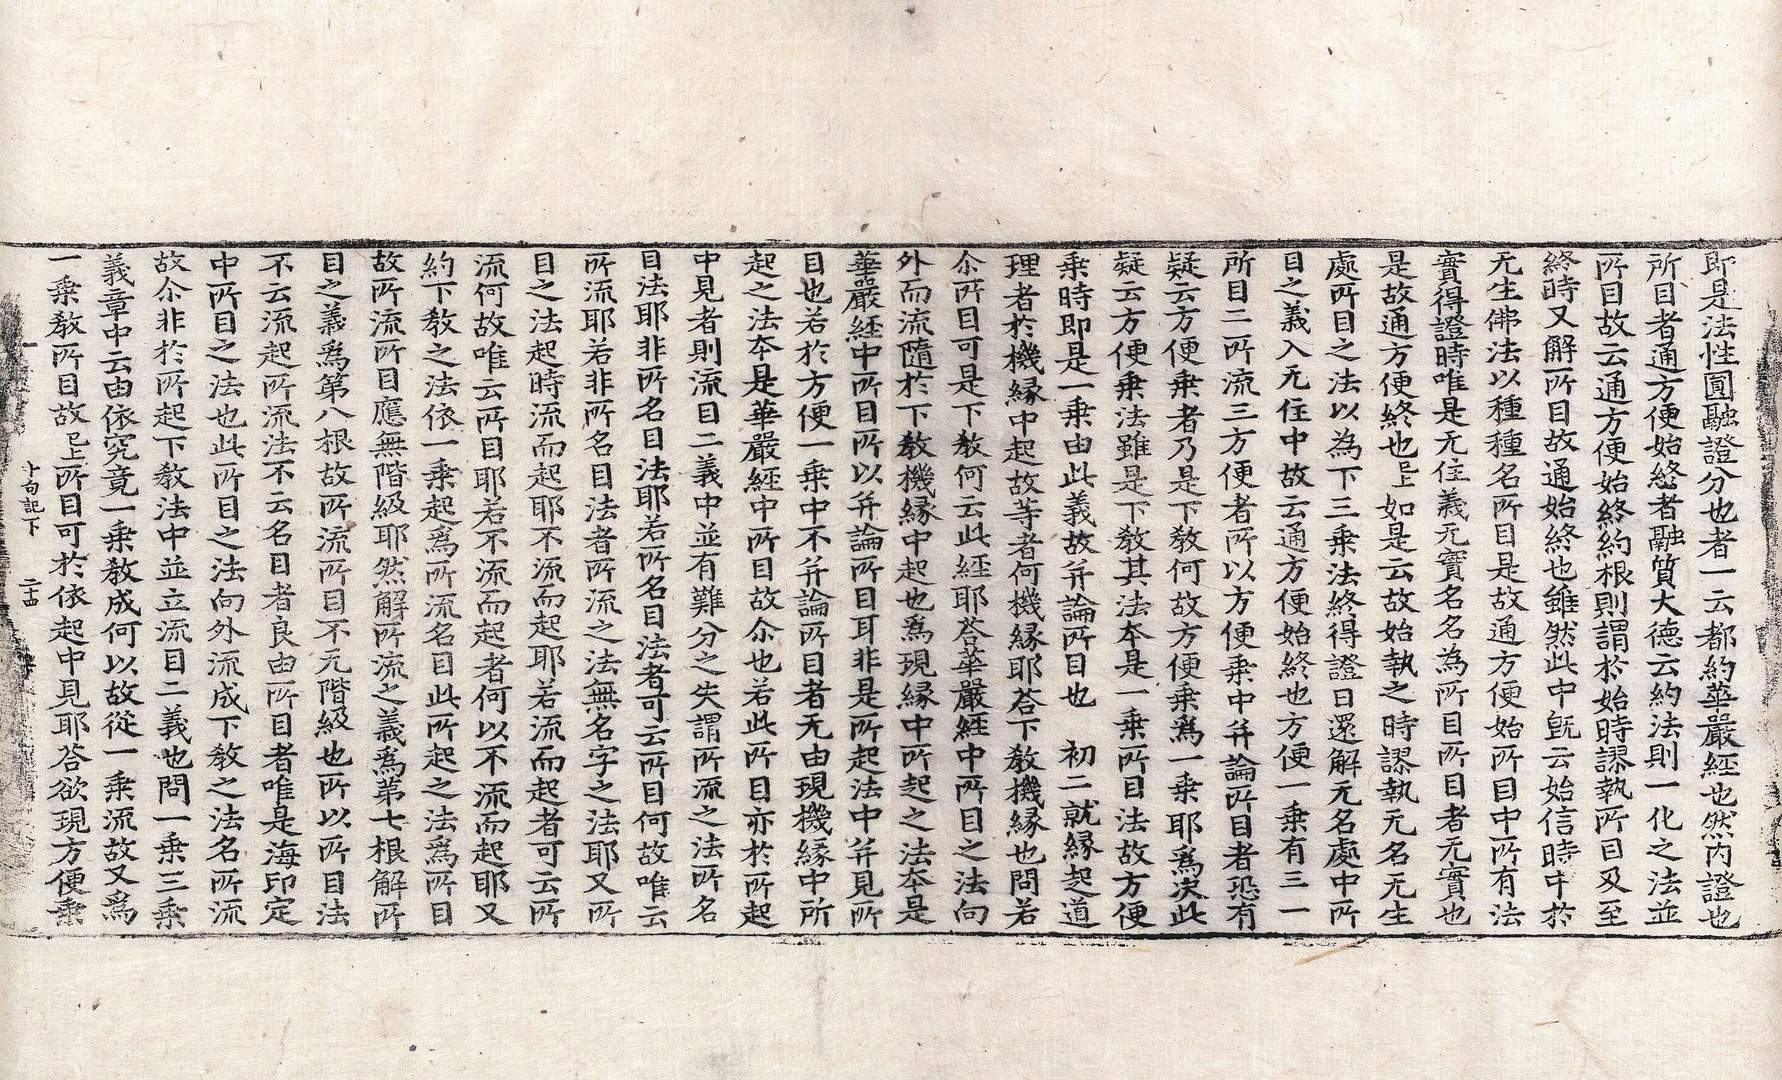 即是法性圓融證分也者一云都約華嚴經也然內證也
所目者通方便始終者融質大德云約法則一化之法並
所目故云通方便始終約根則謂於始時謬執所目及至
終時又解所目故通始終也雖然此中旣云始信時中於
无生佛法以種種名所目是故通方便始所目中所有法
實得證時唯是无住義无實名名為所目所目者无實也
是故通方便終也已上如是云故始執之時謬執无名无生
處所目之法以為下三乗法終得證日還解无名處中所
目之義入无住中故云通方便始終也方便一乗有三一
所目二所流三方便者所以方便乗中并論所目者恐有
疑云方便乗者乃是下敎何故方便乗爲一乗耶爲决此
疑云方便乗法雖是下敎其法夲是一乗所目法故方便
乗時即是一乗由此義故并論所目也　初二就縁起道
理者於機縁中起故等者何機縁耶荅下敎機縁也問若
尒所目可是下敎何云此經耶荅華嚴經中所目之法向
外而流隨於下敎機縁中起也爲現縁中所起之法夲是
華嚴經中所目所以并論所目耳非是所起法中并見所
目也若於方便一乗中不并論所目者无由現機縁中所
起之法夲是華嚴經中所目故尒也若此所目亦於所起
中見者則流目二義中並有難分之失謂所流之法所名
目法耶非所名目法耶若所名目法者可云所目何故唯云
所流耶若非所名目法者所流之法無名字之法耶又所
目之法起時流而起耶不流而起耶若流而起者可云所
流何故唯云所目耶若不流而起者何以不流而起耶又
約下敎之法依一乗起爲所流名目此所起之法爲所目
故所流所目應無階級耶然解所流之義爲第七根解所
目之義爲第八根故所流所目不无階級也所以所目法
不云流起所流法不云名目者良由所目者唯是海印定
中所目之法也此所目之法向外流成下敎之法名所流
故尒非於所起下敎法中並立流目二義也問一乗三乗
義章中云由依究竟一乗敎成何以故從一乗流故又爲
一乗敎所目故已上所目可於依起中見耶荅欲現方便乗
十句記下　二十四